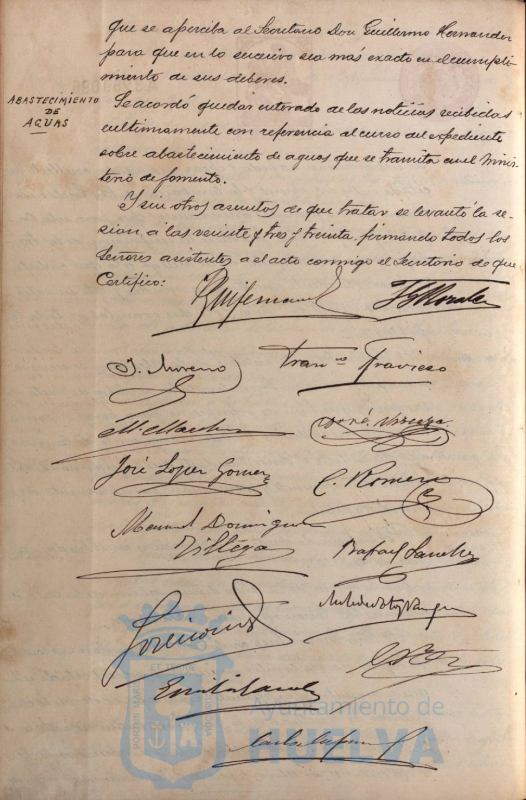 que se aperciba al Secretario Don Guillermo Hernandez
para que en lo sucesivo sea más exacto en el cumpli-
miento de sus deberes.
ABASTECIMIENTO
DE
AGUAS
Se acordó quedar enterado de las noticias recibidas
ultimamente con referencia al curso del expediente
sobre abastecimiento de aguas que se tramita en el Minis-
terio de fomento.
Y sin otros asuntos de que tratar se levantó la se-
sion, a las veinte y tres y treinta, firmando todos los
Señores asistentes a el acto conmigo el Secretario de que
Certifico:
J. Moreno
Fran.co Travieso
José Lopez Gomez
C. Romero
Manuel Dominguez
Villega
Rafael Sanchez
PORTUS MARIS
ET TERRÆ
CUSTODIA
Ayuntamiento de
HUELVA